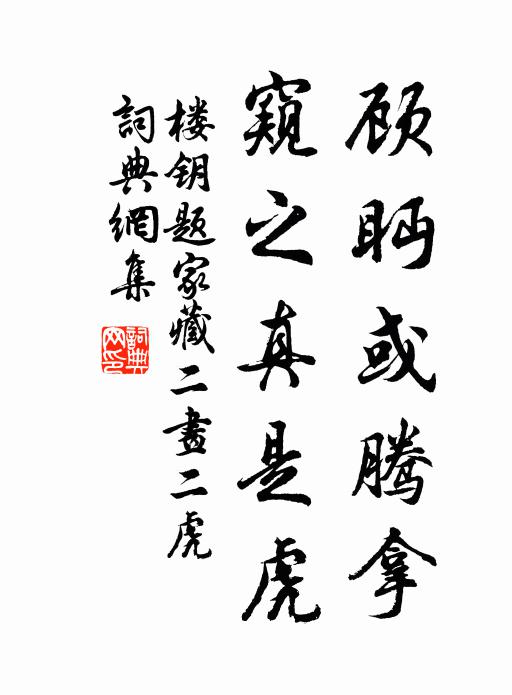 顾眄或腾拿
窥之真是虎
楼钥题家藏二画二虎
词典網集
詞典网印